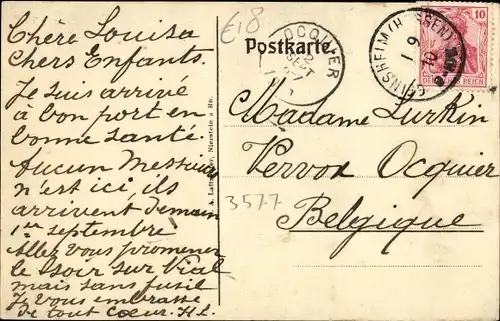 Chère Louisa
Chers Enfants.
Je suis arrivé
à bon port en
bonne santé.
Aucun Messieu
n'est ici, ils
arrivent demain
1er septembre
Allez vous promener
le soir sur Vial
mais sans fusil
Je vous embrasse
de tout coeur. H L.
€18
Postkarte.
OCQUIER
2
SEPT
GEINSHEIM (HESSEN)
1 9
10
DEUTSCHES REICH
Madame Lurkin
Vervox Ocquier
3577
Belgique
Nierstein a Rh.